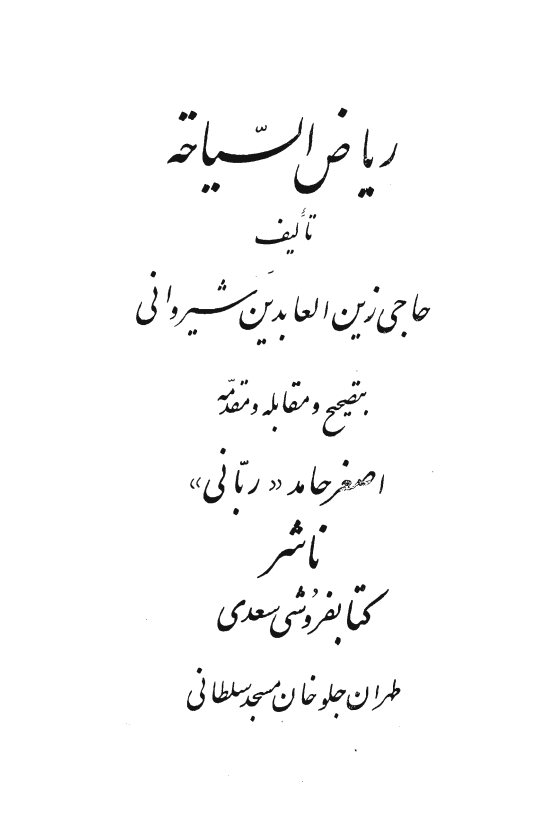 ریاض السّیاحة
تألیف
حاجی زین العابدین شیروانی
بتصحیح و مقابله و مقدّمه
اصغر حامد «ربّانی»
ناشر
کتابفروشی سعدی
طهران جلوخان مسجد سلطانی